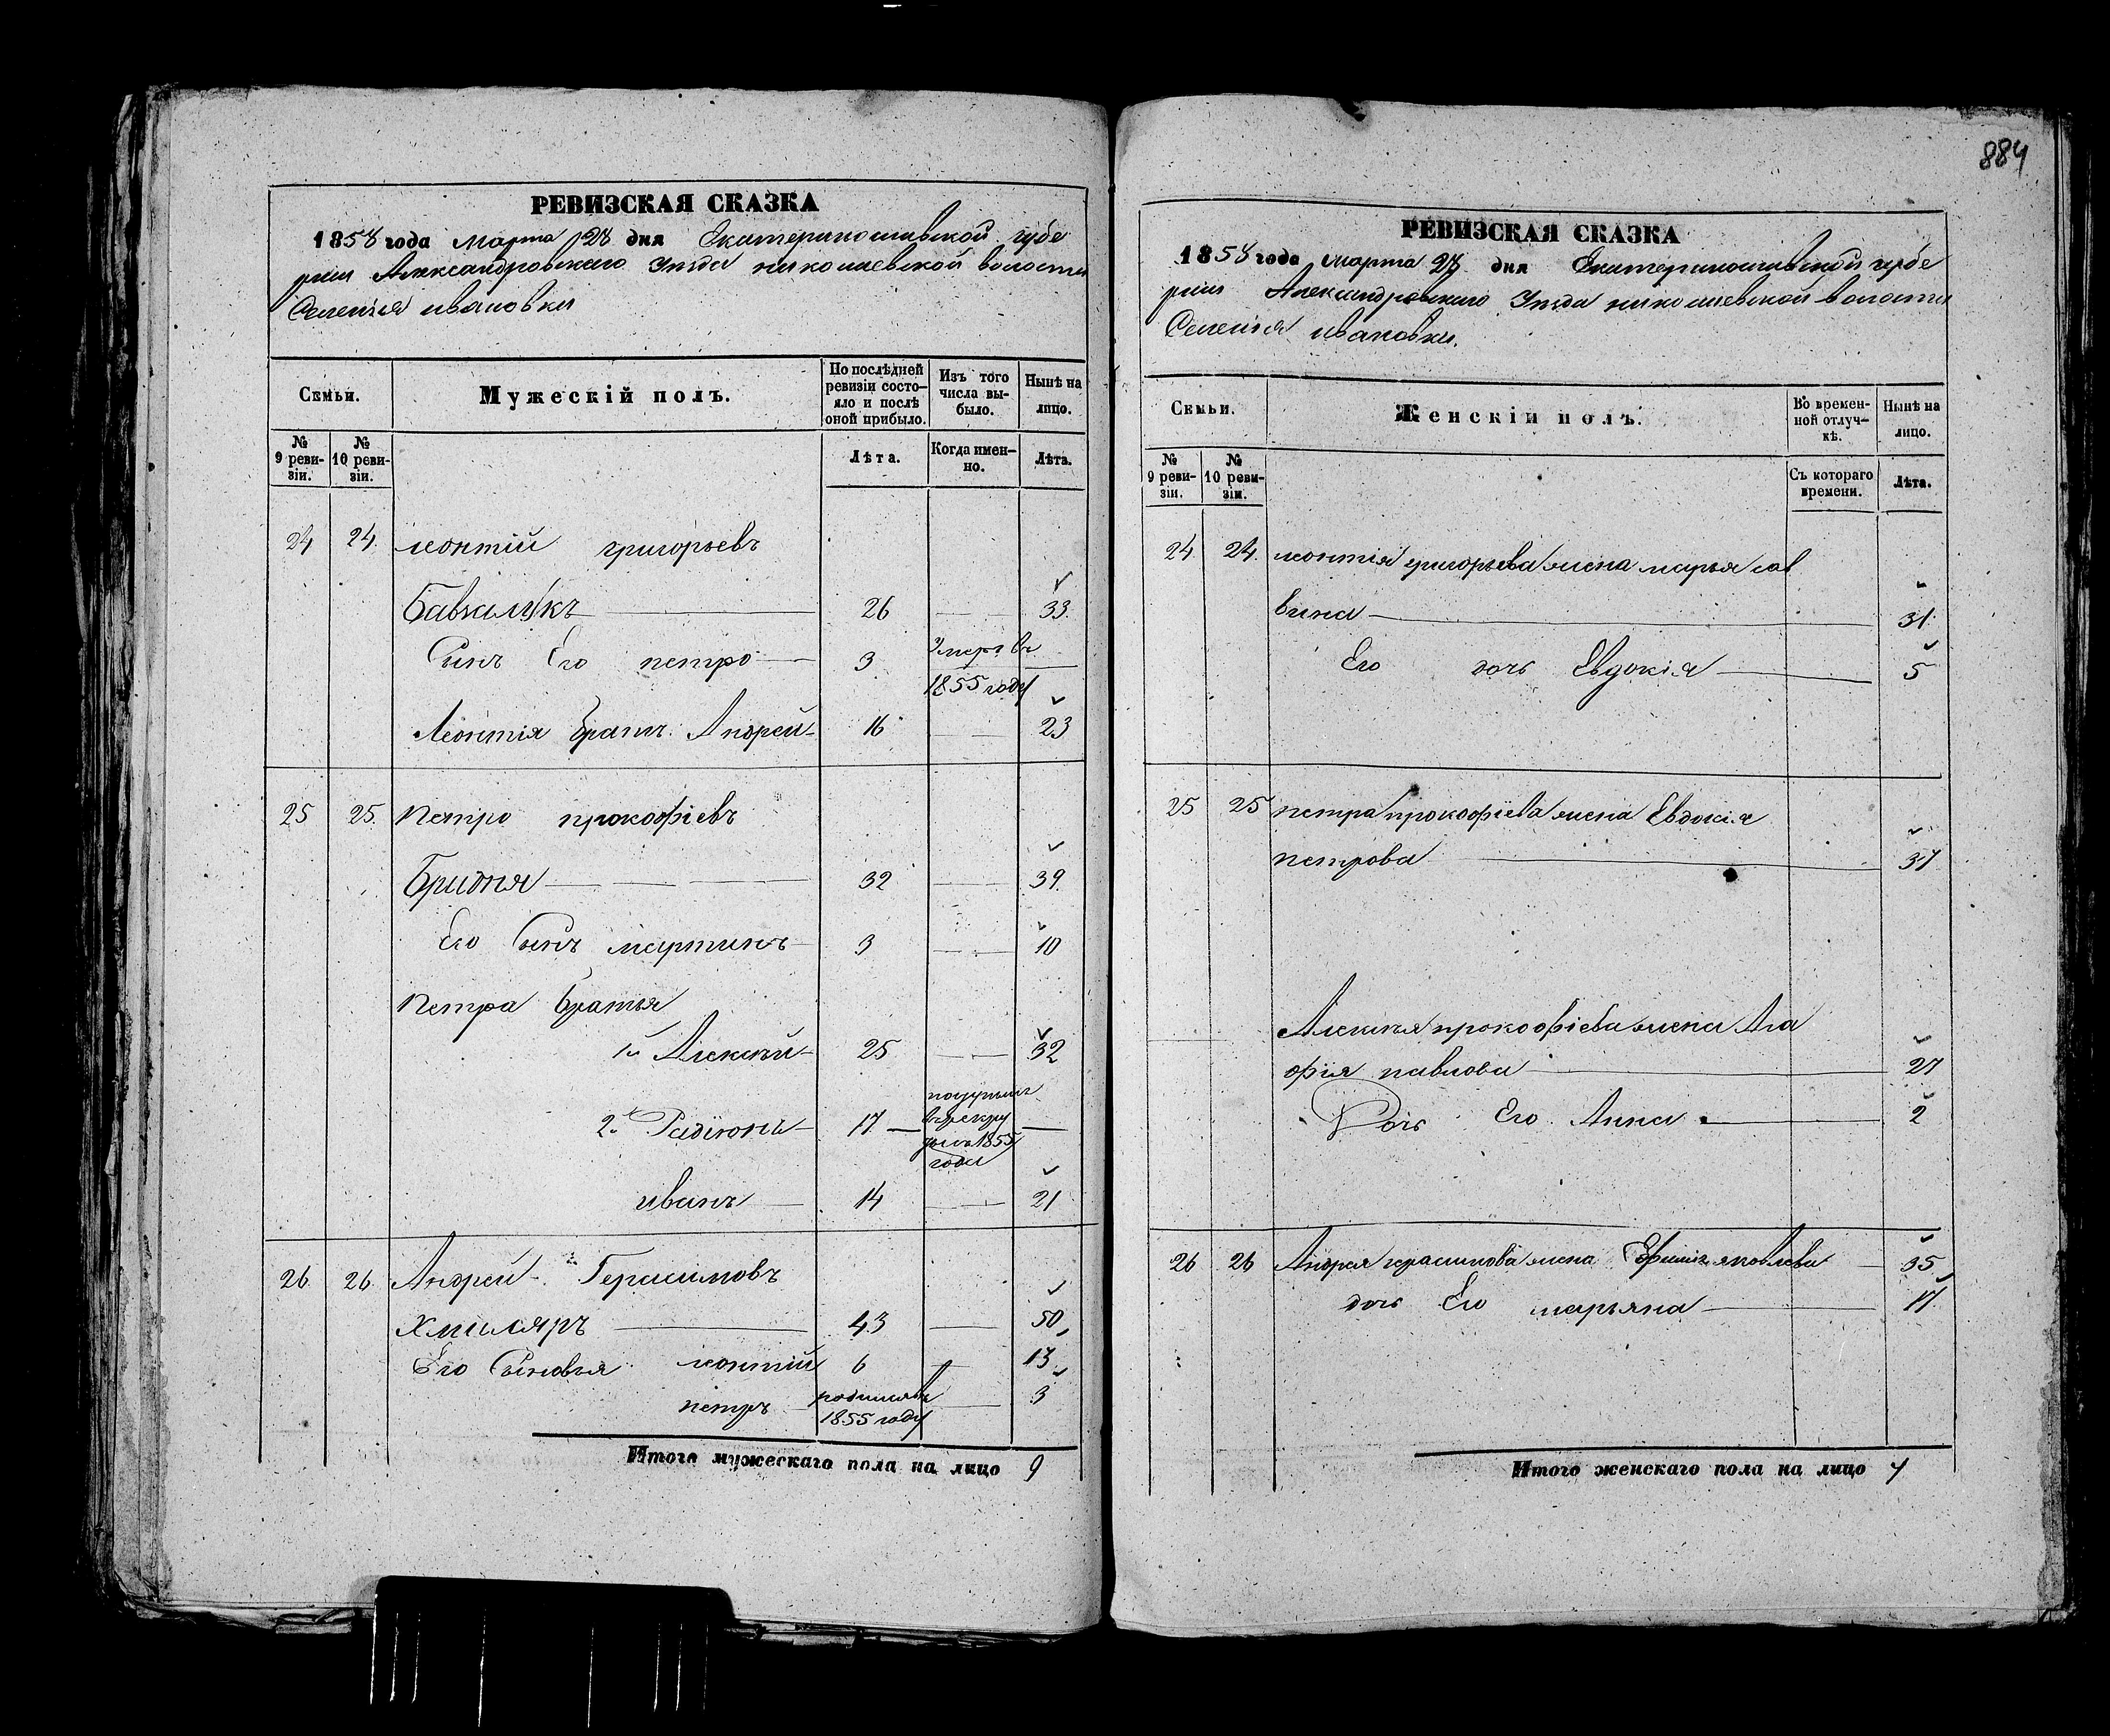 884
РЕВИЗСКАЯ СКАЗКА
1858 года Марта 28 дня Екатеринославской губе
рнии Александровского Уезда николаевской волости
Селенія ивановки
Семьи.
Мужескій полъ.
По послѣдней ревизіи состояло и послѣ оной прибыло.
Изъ того числа выбыло.
Нынѣ на лицо.
№ 9 ревизіи.
№ 10 ревизіи.
Лѣта.
Когда именно.
Лѣта.
24 24. леонтій григорьевъ
26 — 33.
Сынъ Его петро — 3 Умеръ въ 1855 году —
Леонтія братъ Андрей — 16 — 23
25 25. Петро прокофіевъ
Бридня — 32 — 39.
Его Сынъ мартинъ — 3 — 10
Петра братья
1й Алексѣй — 25 — 32
2й Радіонъ — 17 — поступилъ въ рекруты 1855 года —
иванъ — 14 — 21
26. 26. Андрей Герасимовъ
Хмиляръ — 43 — 50
Его Сыновья леонтій 6 — 13
петръ — родился въ 1855 году — 3
Итого мужескаго пола на лицо 9
РЕВИЗСКАЯ СКАЗКА
1858 года марта 28 дня Екатеринославской губе
рнии Александровского Уезда николаевской волости
Селенія ивановки.
Семьи.
Женскій полъ.
Во временной отлучкѣ.
Нынѣ на лицо.
№ 9 ревизіи.
№ 10 ревизіи.
Съ котораго времени.
Лѣта.
24 24. леонтія григорьева жена марья сав
вина — 31.
Его дочь Евдокія — 5
25 25 петра прокофіева жена Евдокія
петрова — 37
Алексѣя прокофіева жена Ага
фія павлова — 27
Дочь Его Анна — 2
26 26 Андрея герасимова жена яковлева — 35
дочь Его марьяна — 17.
Итого женскаго пола на лицо 7